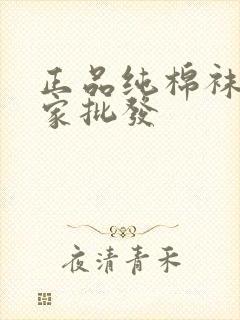 正品纯棉袜
家批發
夜清青禾